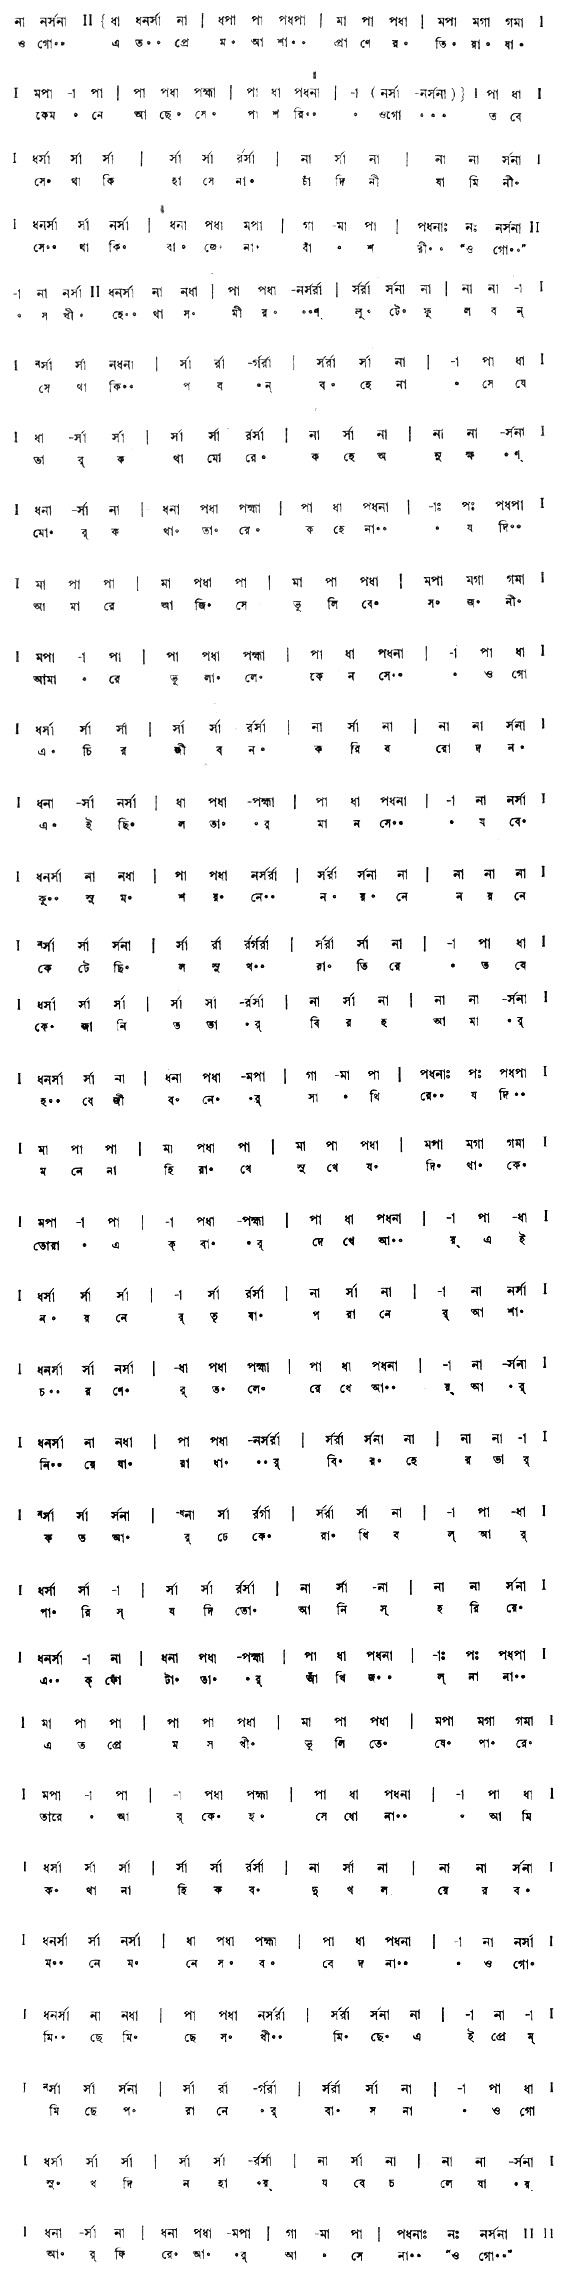 না নর্সনা II { ধা ধনর্সা না | ধপা পা পধপা | মা পা পধা | মপা মগা গমা I
ও গো॰॰ এ ত॰॰ প্রে ম॰ আ শা॰॰ প্রা ণে র॰ তি॰ য়া॰ ষা॰
I মপা -া পা | পা পধা পহ্মা | পা ধা পধনা | -া (নর্সা -নর্সনা) } | পা ধা I
কেম ॰ নে আ ছে॰ সে॰ পা শ রি॰॰ ॰ ওগো ॰ ॰ ॰ ত বে
I ধর্সা র্সা র্সা | র্সা র্সা র্রর্সা | না র্সা না | না না র্সনা I
সে॰ থা কি হা সে না॰ চাঁ দি নী যা মি নী॰
I ধনর্সা র্সা নর্সা | ধনা পধা মপা | গা -মা পা | পধনাঃ নঃ নর্সনা II
সে॰॰ থা কি॰ বা॰ জে॰ না॰ বাঁ ॰ শ রী॰॰ "ও গো॰॰"
-া না নর্সা II ধনর্সা না নধা | পা পধা -নর্সর্রা | র্সর্রা র্সনা না | না না -া I
॰ স খী॰ হে॰॰ থা স॰ মী র॰ ॰॰ণ্ লু॰ টে॰ ফু ল ব ন্
I নর্সা র্সা নধনা | র্সা র্রা -র্গর্রা | র্সর্রা র্সা না | -া পা ধা I
সে থা কি॰॰ প ব ॰ন্ ব॰ হে না ॰ সে যে
I ধা -র্সা র্সা | র্সা র্সা র্রর্সা | না র্সা না | না না -র্সনা I
তা র্ ক থা মো রে॰ ক হে অ নু ক্ষ ॰ণ্
I ধনা -র্সা না | ধনা পধা পহ্মা | পা ধা পধনা | -াঃ পঃ পধপা I
মো॰ র্ ক থা॰ তা॰ রে॰ ক হে না॰॰ ॰ য দি॰॰
I মা পা পা | মা পধা পা | মা পা পধা | মপা মগা গমা I
আ মা রে আ জি॰ সে ভূ লি বে॰ স॰ জ॰ নী॰
I মপা -া পা | পা পধা পহ্মা | পা ধা পধনা | -া পা ধা I
আমা ॰ রে ভূ লা॰ লে॰ কে ন সে॰॰ ॰ ও গো
I ধর্সা র্সা র্সা | র্সা র্সা র্রর্সা | না র্সা না | না না র্সনা I
এ॰ চি র জী ব ন॰ ক রি ব রো দ ন॰
I ধনা -র্সা নর্সা | ধা পধা -পহ্মা | পা ধা পধনা | -া না নর্সা I
এ॰ ই ছি॰ ল তা॰ ॰র্ মা ন সে॰॰ ॰ য বে॰
I ধনর্সা না নধা | পা পধা নর্সর্রা | র্সর্রা র্সনা না | না না না I
কু॰॰ সু ম॰ শ য়॰ নে॰॰ ন॰ য়॰ নে ন য় নে
I নর্সা র্সা র্সনা | র্সা র্রা র্রর্গর্রা | র্সর্রা র্সা না | -া পা ধা I
কে টে ছি॰ ল সু খ॰॰ রা॰ তি রে ॰ ত বে
I ধর্সা র্সা র্সা | র্সা র্সা -র্রর্সা | না র্সা না | না না -র্সনা I
কে॰ জা নি ত তা ॰র্ বি র হ আ মা ॰র্
I ধনর্সা র্সা না | ধনা পধা -মপা | গা -মা পা | পধনাঃ পঃ পধপা I
হ॰॰ বে জী ব॰ নে॰ ॰র্ সা ॰ থি রে॰॰ য দি॰॰
I মা পা পা | মা পধা পা | মা পা পধা | মপা মগা গমা I
ম নে না হি রা॰ খে সু খে য॰ দি॰ থা॰ কে॰
I মপা -া পা | -া পধা -পহ্মা | পা ধা পধনা | -া পা -ধা I
তোরা ॰ এ ক্ বা॰ ॰র্ দে খে আ॰॰ য়্ এ ই
I ধর্সা র্সা র্সা | -া র্সা র্রর্সা | না র্সা না | -া না নর্সা I
ন॰ য় নে র্ তৃ ষা॰ প রা নে র্ আ শা॰
I ধনর্সা র্সা নর্সা | -ধা পধা পহ্মা | পা ধা পধনা | -া না -র্সনা I
চ॰॰ র ণে॰ র্ ত॰ লে॰ রে খে আ॰॰ য়্ আ ॰র্
I ধনর্সা না নধা | পা পধা -নর্সর্রা | র্সর্রা র্সনা না | না না -া I
নি॰॰ য়ে যা॰ রা ধা॰ ॰॰র্ বি॰ র॰ হে র ভা র্
I নর্সা র্সা র্সনা | -না র্সা র্রর্গা | র্সর্রা র্সা না | -া পা -ধা I
ক ত আ॰ র্ ঢে কে॰ রা॰ খি ব ল্ আ র্
I ধর্সা র্সা -া | র্সা র্সা র্রর্সা | না র্সা -না | না না র্সনা I
পা॰ রি স্ য দি তো॰ আ নি স্ হ রি য়ে॰
I ধনর্সা -া না | ধনা পধা -পহ্মা | পা ধা পধনা | -াঃ পঃ পধপা I
এ॰॰ ক্ ফোঁ টা॰ তা॰ ॰র্ আঁ খি জ॰॰ ল্ না না॰॰
I মা পা পা | পা পা পধা | মা পা পধা | মপা মগা গমা I
এ ত প্রে ম স খী॰ ভূ লি তে॰ যে॰ পা॰ রে॰
I মপা -া পা | -া পধা পহ্মা | পা ধা পধনা | -া পা ধা I
তারে ॰ আ র্ কে॰ হ॰ সে ধো না॰॰ ॰ আ মি
I ধর্সা র্সা র্সা | র্সা র্সা র্রর্সা | না র্সা না | না না র্সনা I
ক॰ থা না হি ক ব॰ দু খ ল য়ে র ব॰
I ধনর্সা র্সা নর্সা | ধা পধা পহ্মা | পা ধা পধনা | -া না নর্সা I
ম॰॰ নে ম॰ নে স॰ ব॰ বে দ না॰॰ ॰ ও গো॰
I ধনর্সা না নধা | পা পধা নর্সর্রা | র্সর্রা র্সনা না | -া না -া I
মি॰॰ ছে মি॰ ছে স॰ খী॰॰ মি॰ ছে॰ এ ই প্রে ম্
I নর্সা র্সা র্সনা | র্সা র্রা -র্গর্রা | র্সর্রা র্সা না | -া পা ধা I
মি ছে প॰ রা নে ॰র্ বা॰ স না ॰ ও গো
I ধর্সা র্সা র্সা | র্সা র্সা -র্রর্সা | না র্সা না | না না -র্সনা I
সু॰ খ দি ন হা ॰য়্ য বে চ লে যা ॰য়্
I ধনা -র্সা না | ধনা পধা -মপা | গা -মা পা | পধনাঃ নঃ নর্সনা II II
আ॰ র্ ফি রে॰ আ॰ ॰র্ আ ॰ সে না॰॰ "ও গো॰॰"